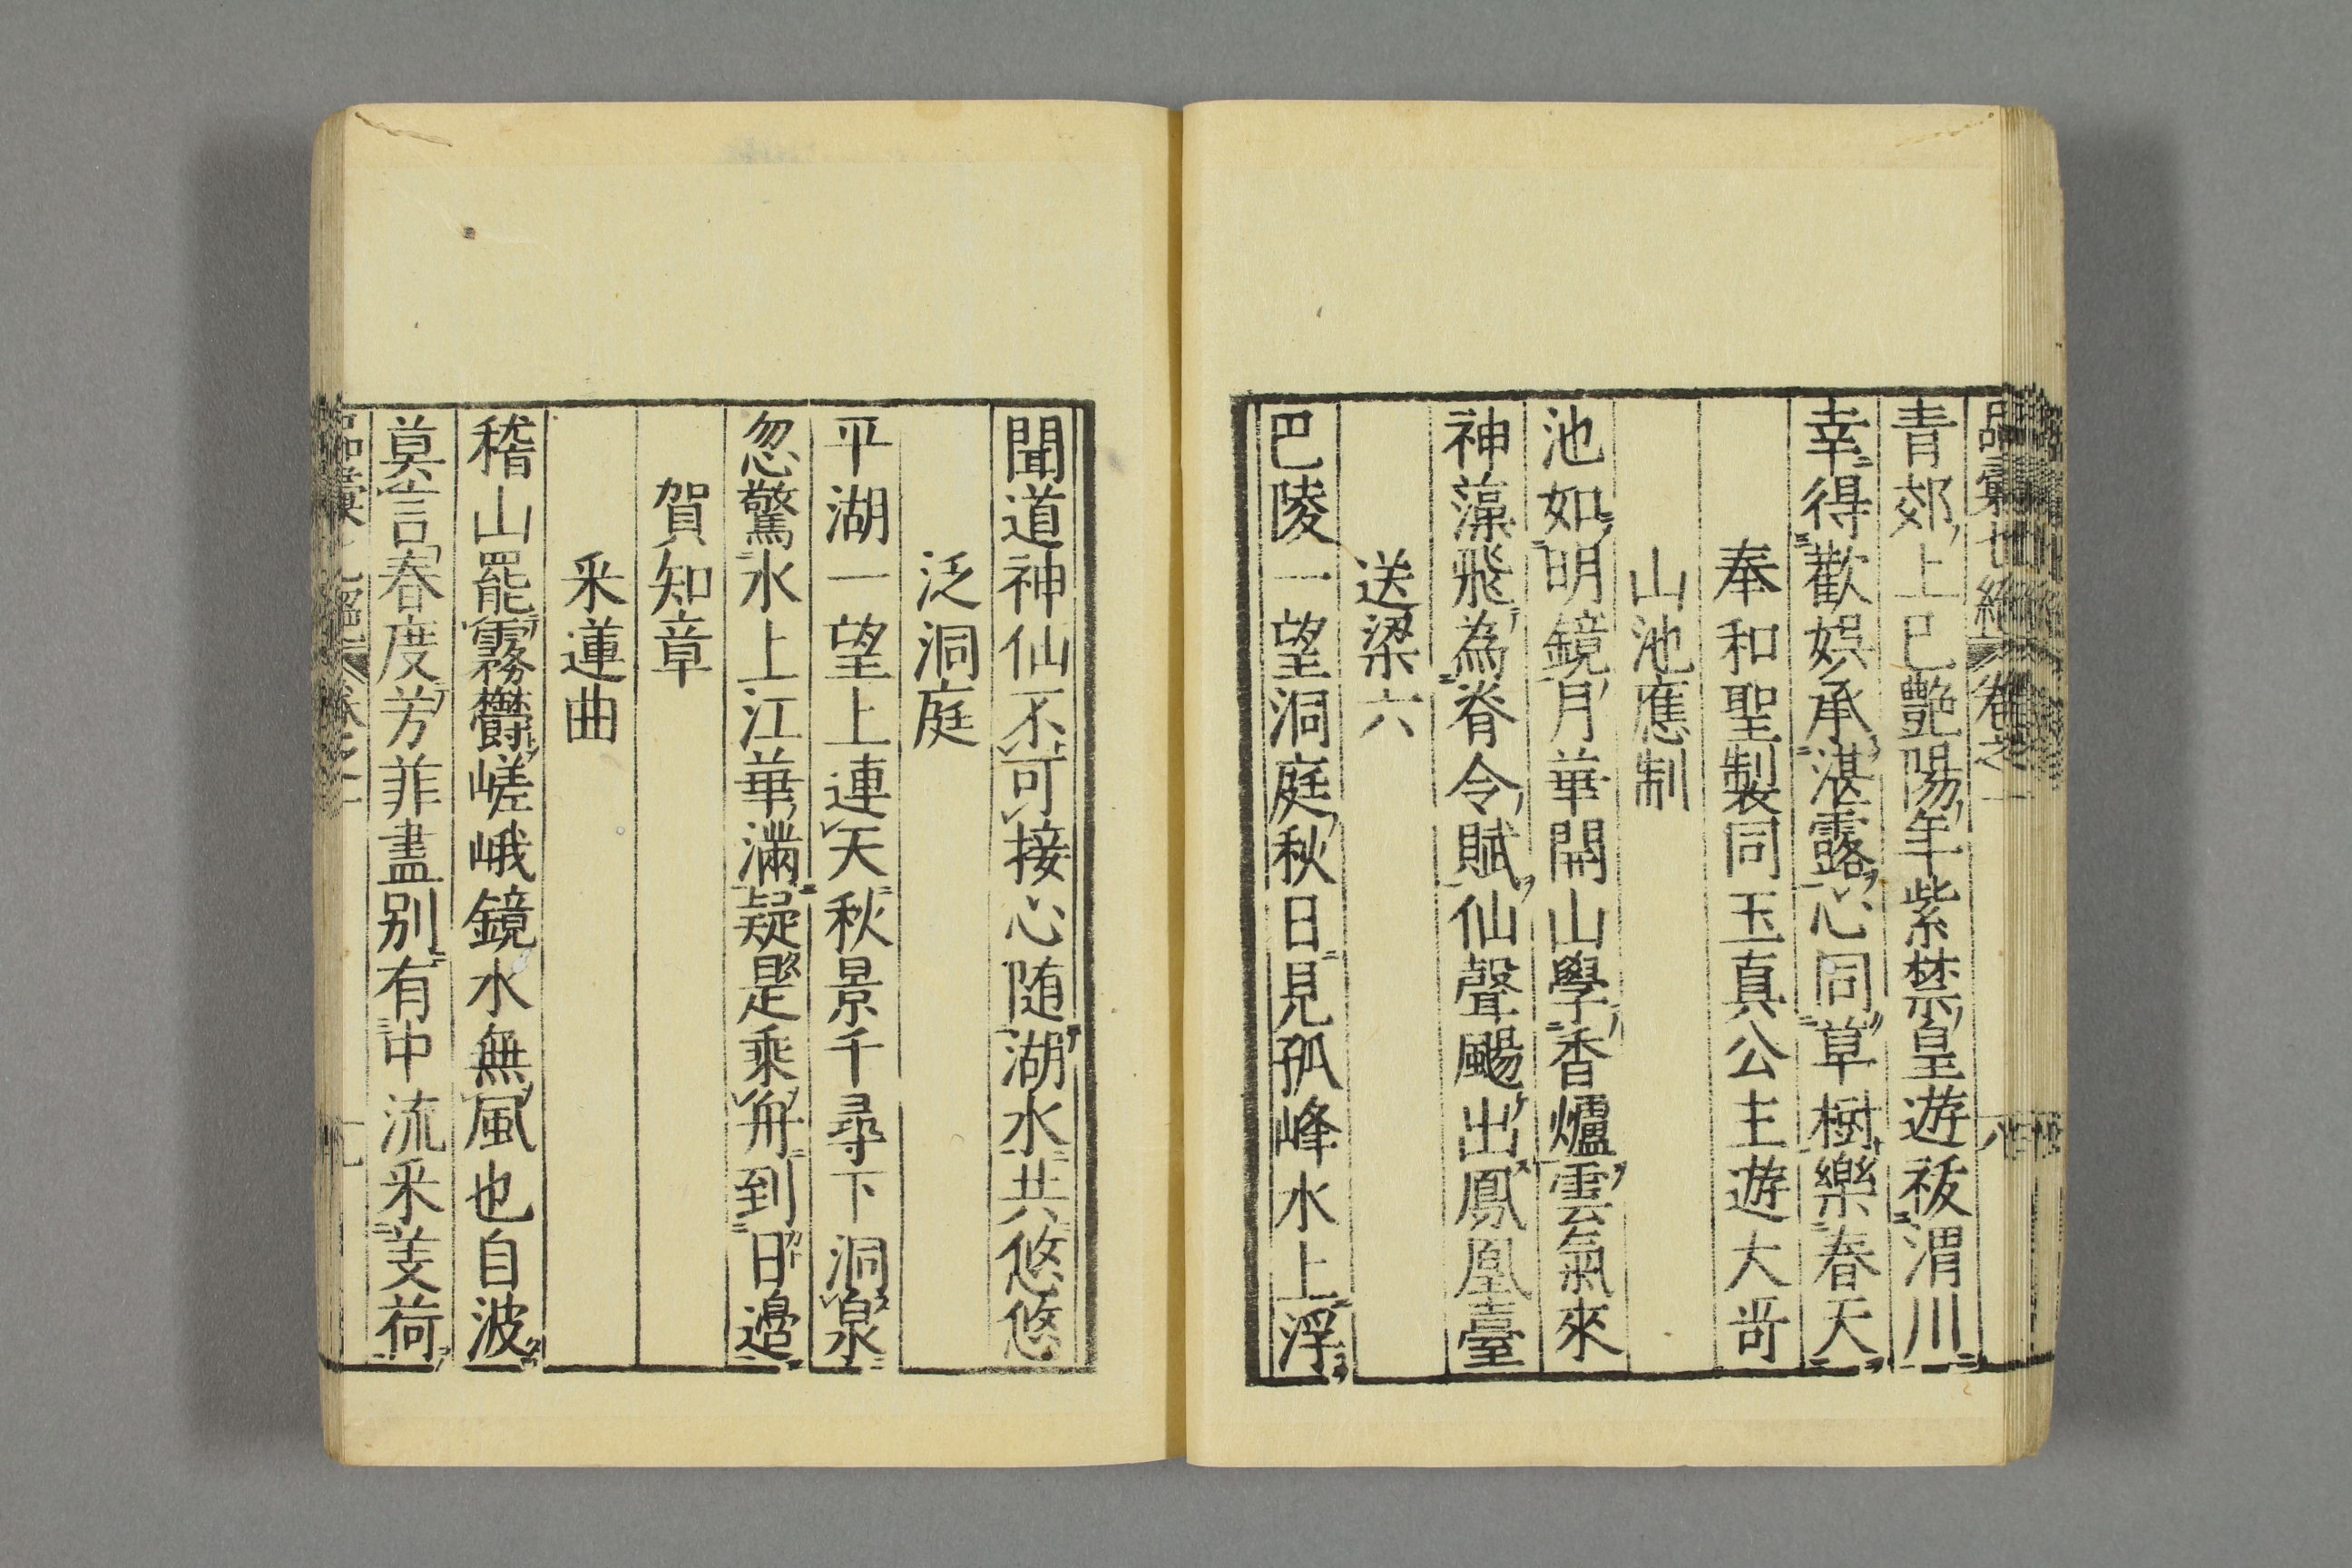 品彙七絶 卷之一 八
青郊上巳艷陽年紫禁皇遊祓渭川
幸得歡娯承湛露心同草樹樂春天
奉和聖製同玉真公主遊大哥
山池應制
池如明鏡月華開山學香爐雲氣來
神藻飛為脊令賦仙聲颺出鳳凰臺
送梁六
巴陵一望洞庭秋日見孤峰水上浮
聞道神仙不可接心随湖水共悠悠
泛洞庭
平湖一望上連天秋景千尋下洞泉
忽驚水上江華滿疑是乘舟到日邉
賀知章
采蓮曲
稽山罷霧欝嵯峨鏡水無風也自波
莫言春度芳菲盡别有中流采芰荷